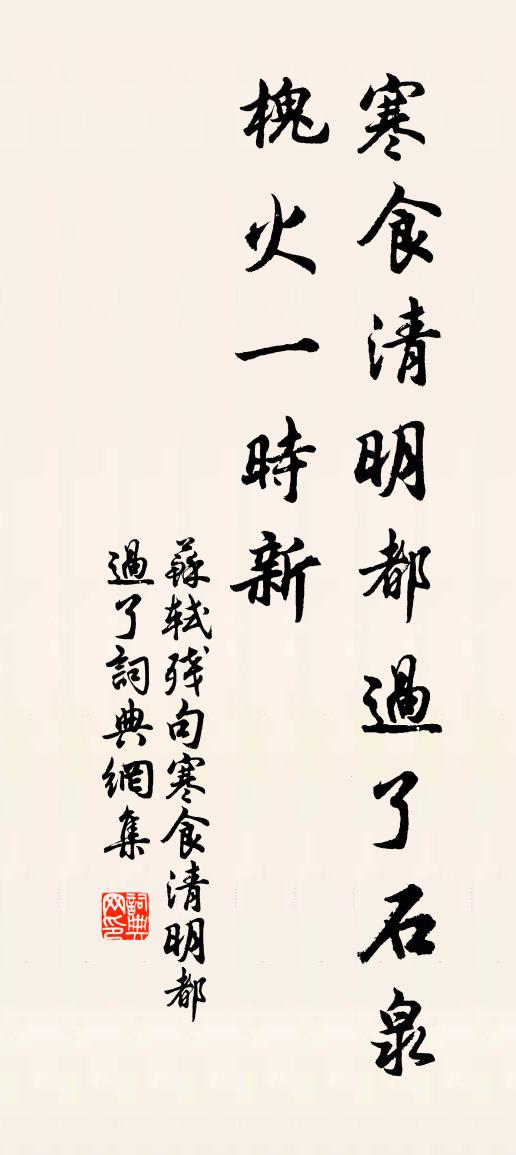 寒食清明都過了石泉
槐火一時新
蘇軾殘句寒食清明都
過了詞典網集
詞典
网印